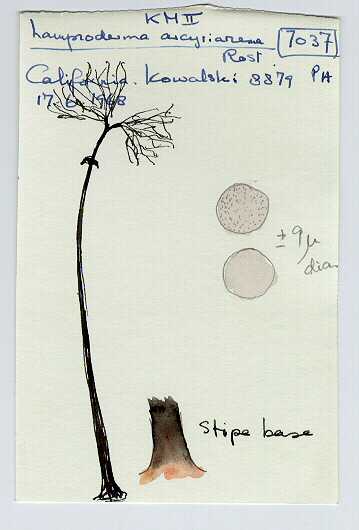 KM II
Lamproderma arcyrioides
Rost. 7037
California. Kowalski 8879 PA
17.6.1968
± 9 µ
diam
Stipe base